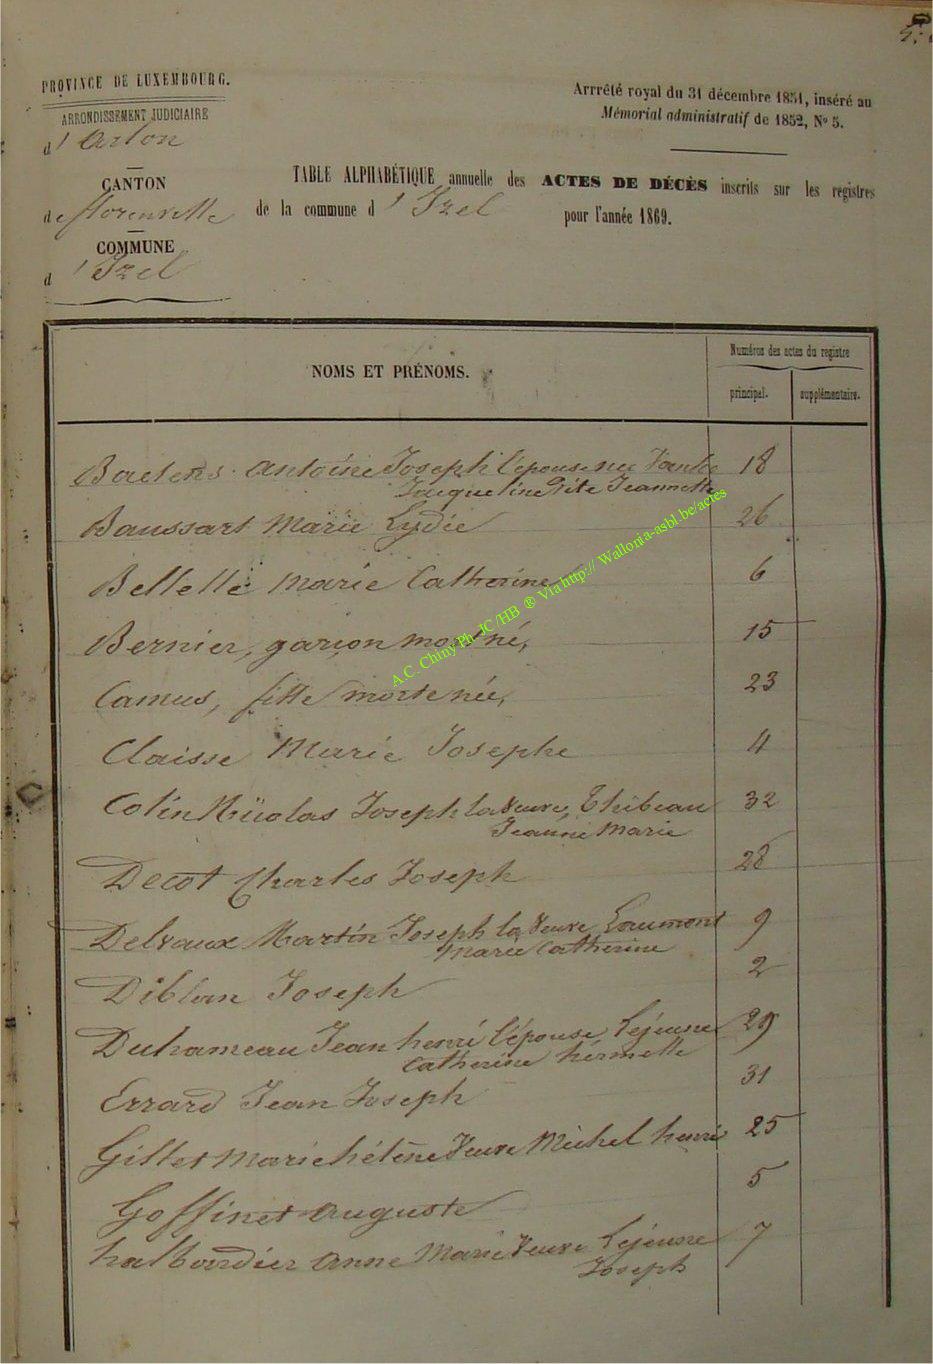 PROVINCE DE LUXEMBOURG.
ARRONDISSEMENT JUDICIAIRE
d'Arlon
CANTON
de florenville
COMMUNE
d'Izel
Arrrêté royal du 31 décembre 1851, inséré au
Mémorial administratif de 1852, N° 5.
TABLE ALPHABÉTIQUE annuelle des ACTES DE DÉCÈS inscrits sur les registres
de la commune d'Izel pour l'année 1869.
NOMS ET PRÉNOMS.
Numéros des actes du registre
principal. supplémentaire.
Baetens Antoine Joseph l'épouse née 18
Jacqueline Jeannette
Baussart Marie Lydie 26
Bellelle Marie Catherine 6
Bernier, garçon mort né, 15
Camus, fille morte née, 23
Claisse Marie Josephe 4
Colin Nicolas Joseph la veuve, Thibeau 32
Jeanne Marie
Decot Charles Joseph 28
Delvaux Martin Joseph la veuve Laumont 9
Marie Catherine
Diblan Joseph 2
Duhameau Jean henri l'épouse Lejeune 29
Catherine
Errard Jean Joseph 31
Gillet Marie hélène veuve Michel henri 25
Goffinet Auguste 5
halbardier Anne Marie veuve Lejeune 7
Joseph
A.C. Chiny Ph-JC /HB ® Via http:// Wallonia-asbl.be/actes